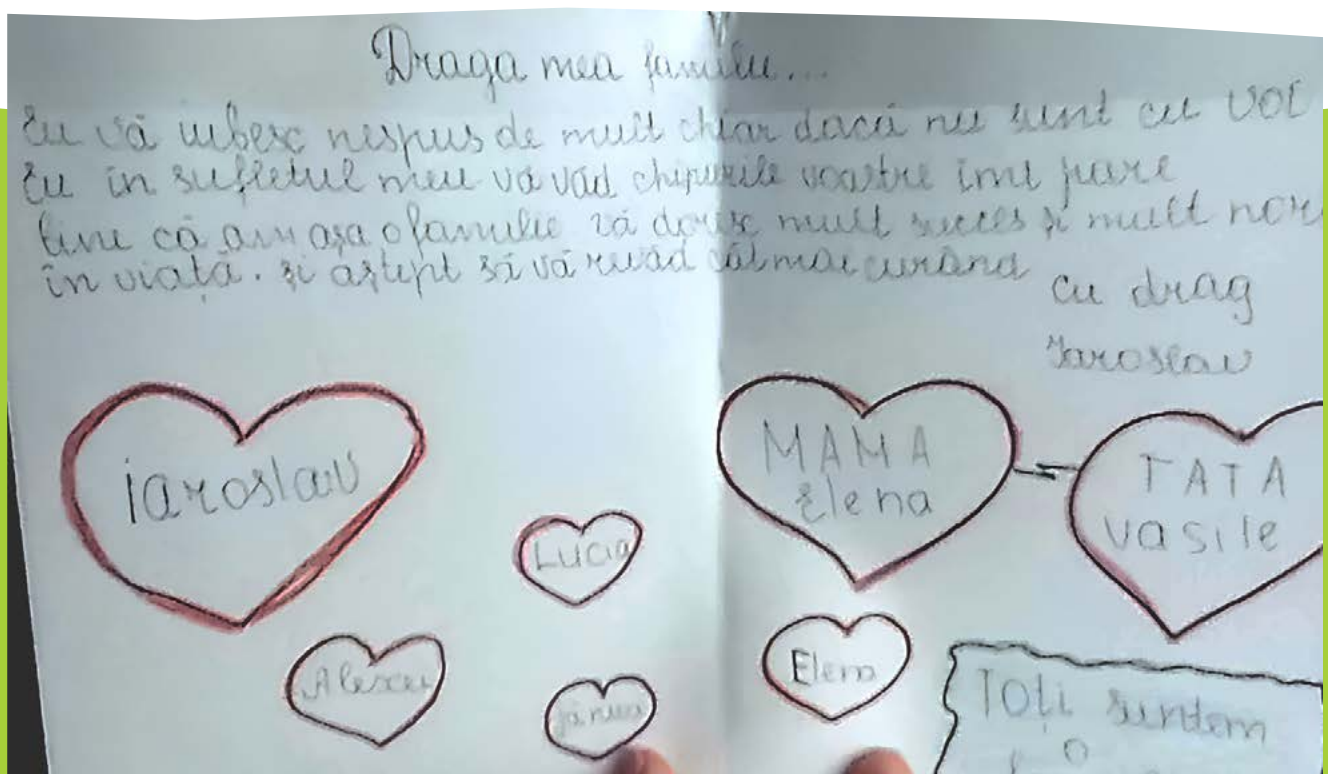 Draga mea familie...
Eu vă iubesc nespus de mult chiar dacă nu sunt cu voi
Eu în sufletul meu vă văd chipurile voastre îmi pare
bine că am așa o familie vă doresc mult succes și mult noro
în viață. și aștept să vă revăd cât mai curând
cu drag
Iaroslav
iaroslav
MAMA
Elena
TATA
vasile
Lucia
Alexei
Elena
Toți suntem
O